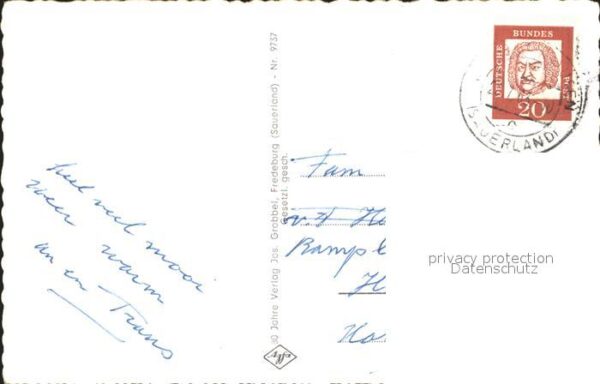 heel veel mooi
weer warm
an en Frans
30 Jahre Verlag Jos. Grobbel, Fredeburg (Sauerland) - Nr. 9737
Gesetzl. gesch.
Fam
v d Ho
Rampl
H
Ha
DEUTSCHE BUNDES POST
20
(SAUERLAND)
EN
privacy protection
Datenschutz